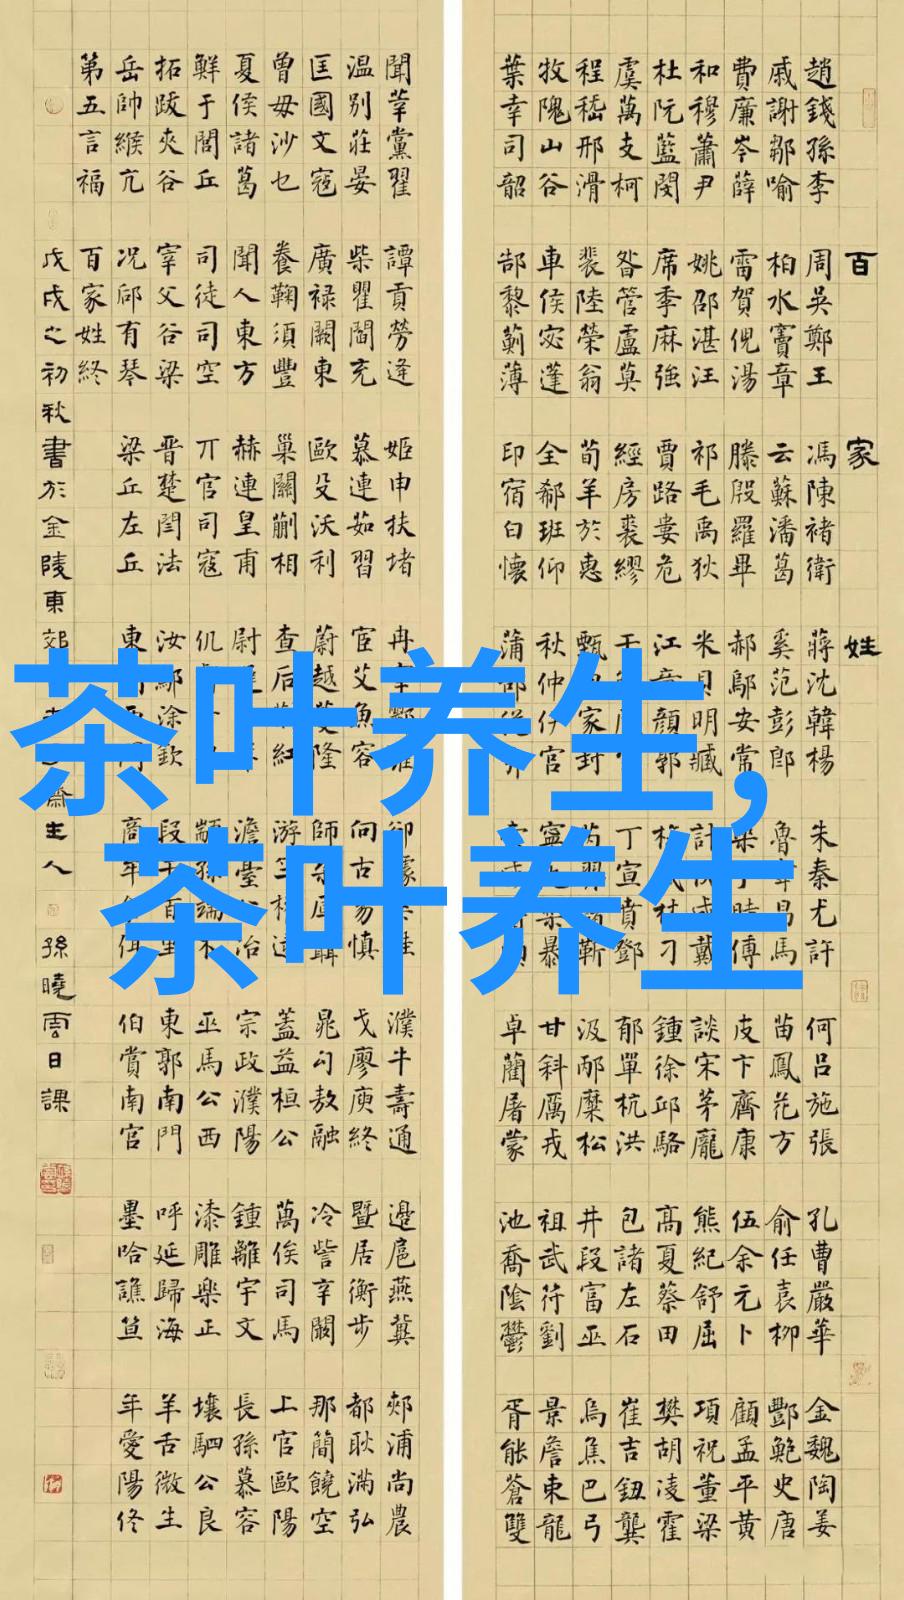 百家姓
趙錢孫李 周吳鄭王 馮陳褚衛 蔣沈韓楊 朱秦尤許 何呂施張 孔曹嚴華 金魏陶姜
戚謝鄒喻 柏水竇章 云蘇潘葛 奚范彭郎 魯韋昌馬 苗鳳花方 俞任袁柳 酆鮑史唐
費廉岑薛 雷賀倪湯 滕殷羅畢 郝鄔安常 樂于時傅 皮卞齊康 伍余元卜 顧孟平黃
和穆蕭尹 姚邵湛汪 祁毛禹狄 米貝明臧 計伏成戴 談宋茅龐 熊紀舒屈 項祝董梁
杜阮藍閔 席季麻強 賈路婁危 江童顏郭 林刁 鍾徐邱駱 高夏蔡田 樊胡凌霍
虞萬支柯 昝管盧莫 經房裘繆 丁宣賁鄧 郁單杭洪 包諸左石 崔吉鈕龔
程嵇邢滑 裴陸榮翁 荀羊於惠 甄家封 芮羿靳 汲邴糜松 井段富巫 烏焦巴弓
牧隗山谷 車侯宓蓬 全郗班仰 秋仲伊宮 寧暴 甘斜厲戎 祖武符劉 景詹束龍
葉幸司韶 郜黎薊薄 印宿白懷 蒲 卓藺屠蒙 池喬陰鬱 胥能蒼雙
聞莘黨翟 譚貢勞逄 姬申扶堵 冉 濮牛壽通 邊扈燕冀 郟浦尚農
温別莊晏 柴瞿閻充 慕連茹習 宦艾魚容 向古易慎 戈廖庾終 暨居衡步 都耿滿弘
匡國文寇 廣祿闕東 歐殳沃利 蔚越夔隆 師聶 晁勾敖融 冷訾辛闞 那簡饒空
曾毋沙乜 養鞠須豐 巢關蒯相 查后紅 游竺 蓋益桓公 萬俟司馬 上官歐陽
夏侯諸葛 聞人東方 赫連皇甫 尉 澹臺冶 宗政濮陽 鍾離宇文 長孫慕容
鮮于閭丘 司徒司空 丌官司寇 仉 顓孫端木 巫馬公西 漆雕樂正 壤駟公良
拓跋夾谷 宰父谷梁 晉楚閆法 汝鄢涂欽 段干百里 東郭南門 呼延歸海 羊舌微生
岳帥緱亢 况郈有琴 梁丘左丘 東 商牟 伯賞南宮 墨哈譙笪 年愛陽佟
第五言福 百家姓終
戊戌之初秋書於金陵東郊 齋主人 孫曉雲日課
茶叶养生,
茶叶养生